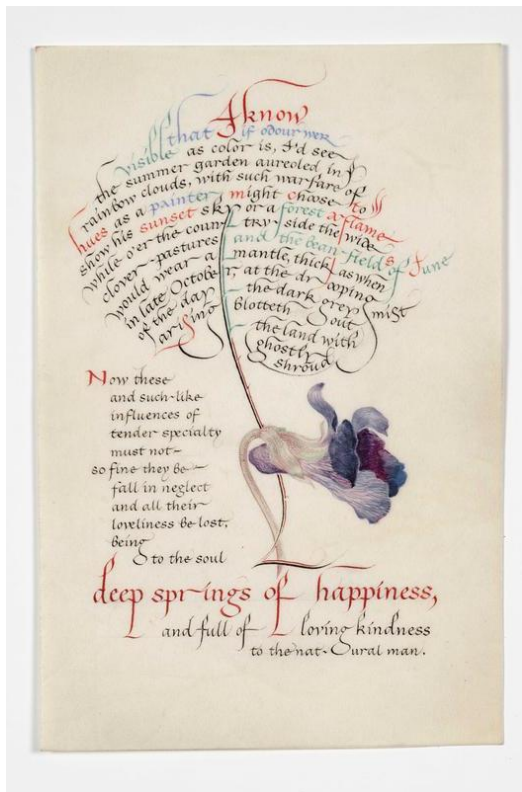 I know
that if odour wer
visible as color is, I'd see
the summer garden aureoled in
rainbow clouds, with such warfare of
hues as a painter might choose to
show his sunset sky or a forest aflame
while o'er the country side the wide
clover-pastures and the bean-fields of June
would wear a mantle, thick as when
in late October, at the drooping
of the day the dark grey mist
arising blotteth out
the land with
ghostly
shroud
Now these
and such-like
influences of
tender specialty
must not-
so fine they be-
fall in neglect
and all their
loveliness be lost,
being
to the soul
deep springs of happiness,
and full of loving kindness
to the nat-ural man.